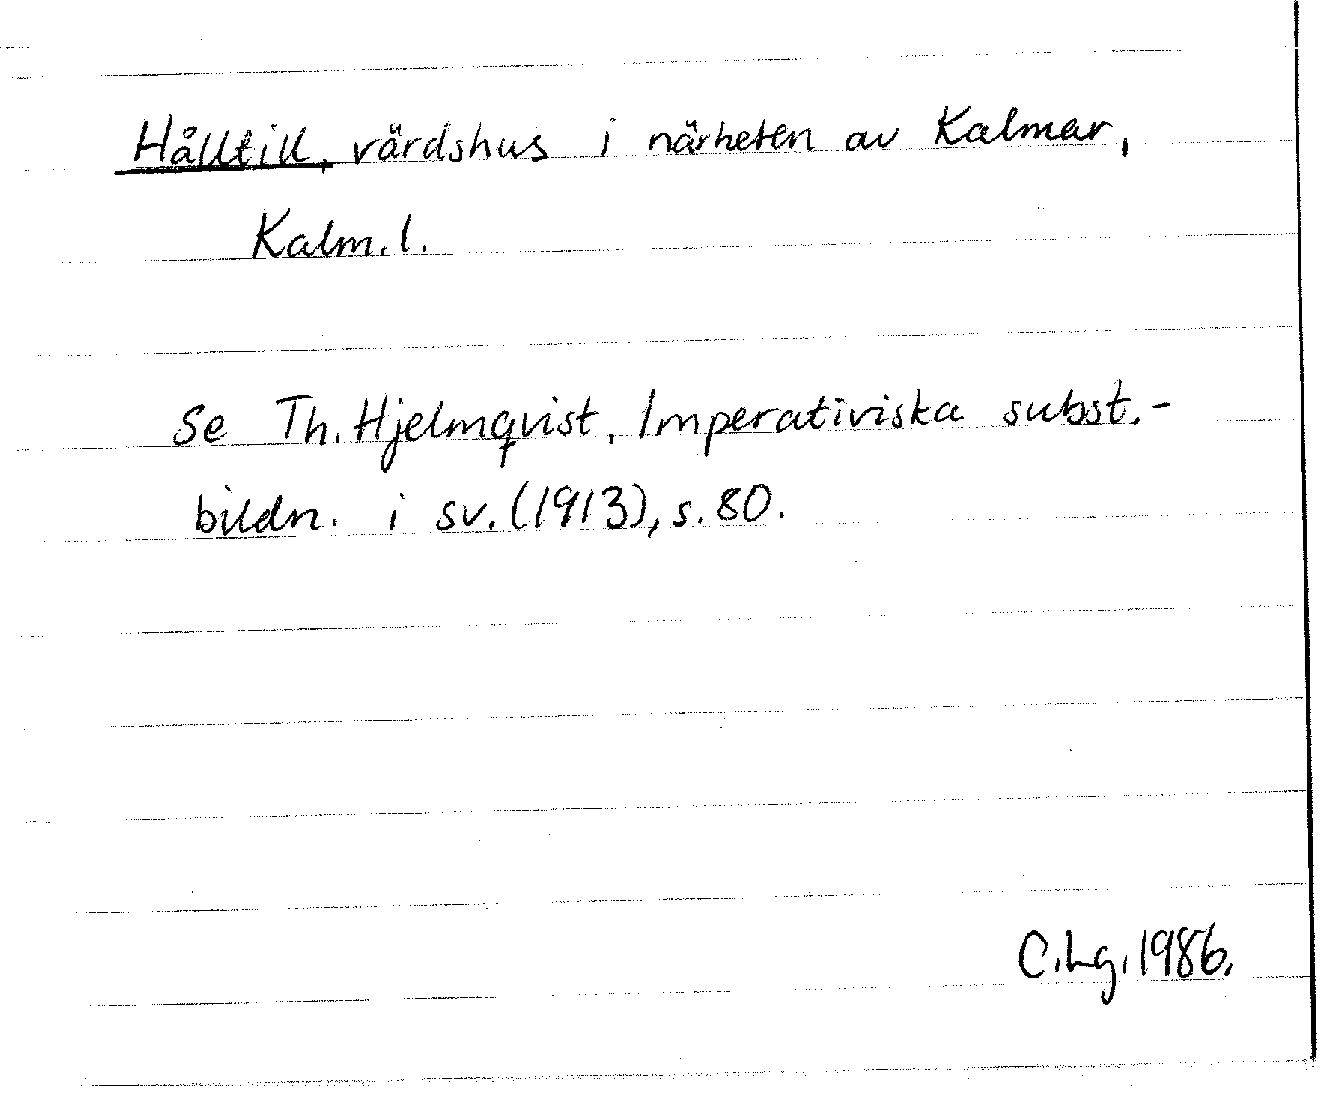 Hålltill, värdshus i närheten av Kalmar,
Kalm. l.
Se Th. Hjelmqvist, Imperativiska subst.-
bildn. i sv. (1913), s. 80.
C. Lg. 1986.